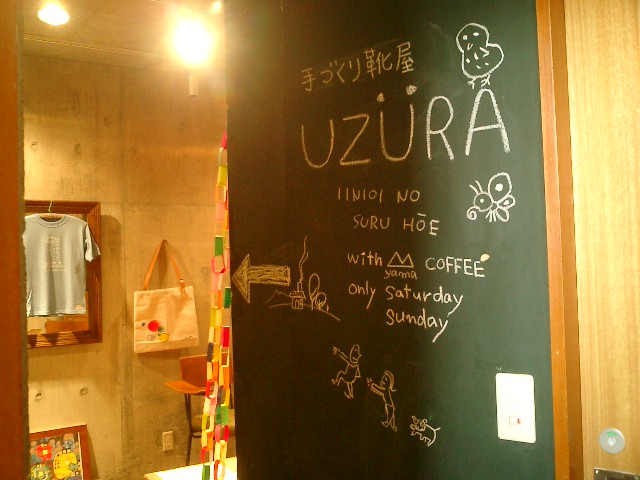 手づくり靴屋
UZÜRA
IINIOI NO
SURU HŌE
with
yama
COFFEE
only Saturday
Sunday